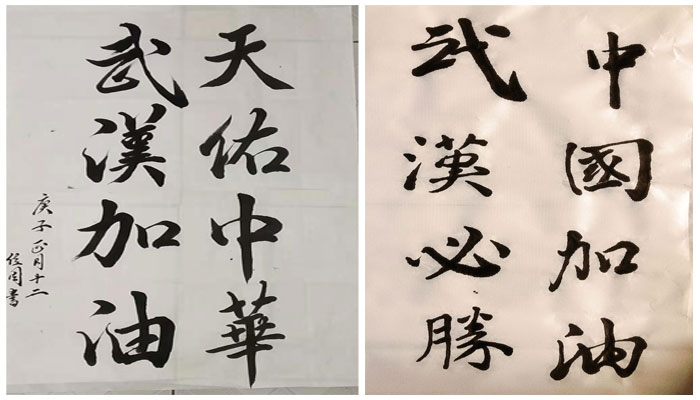 天佑中華
武漢加油
庚子正月十二
中國加油
武漢必勝